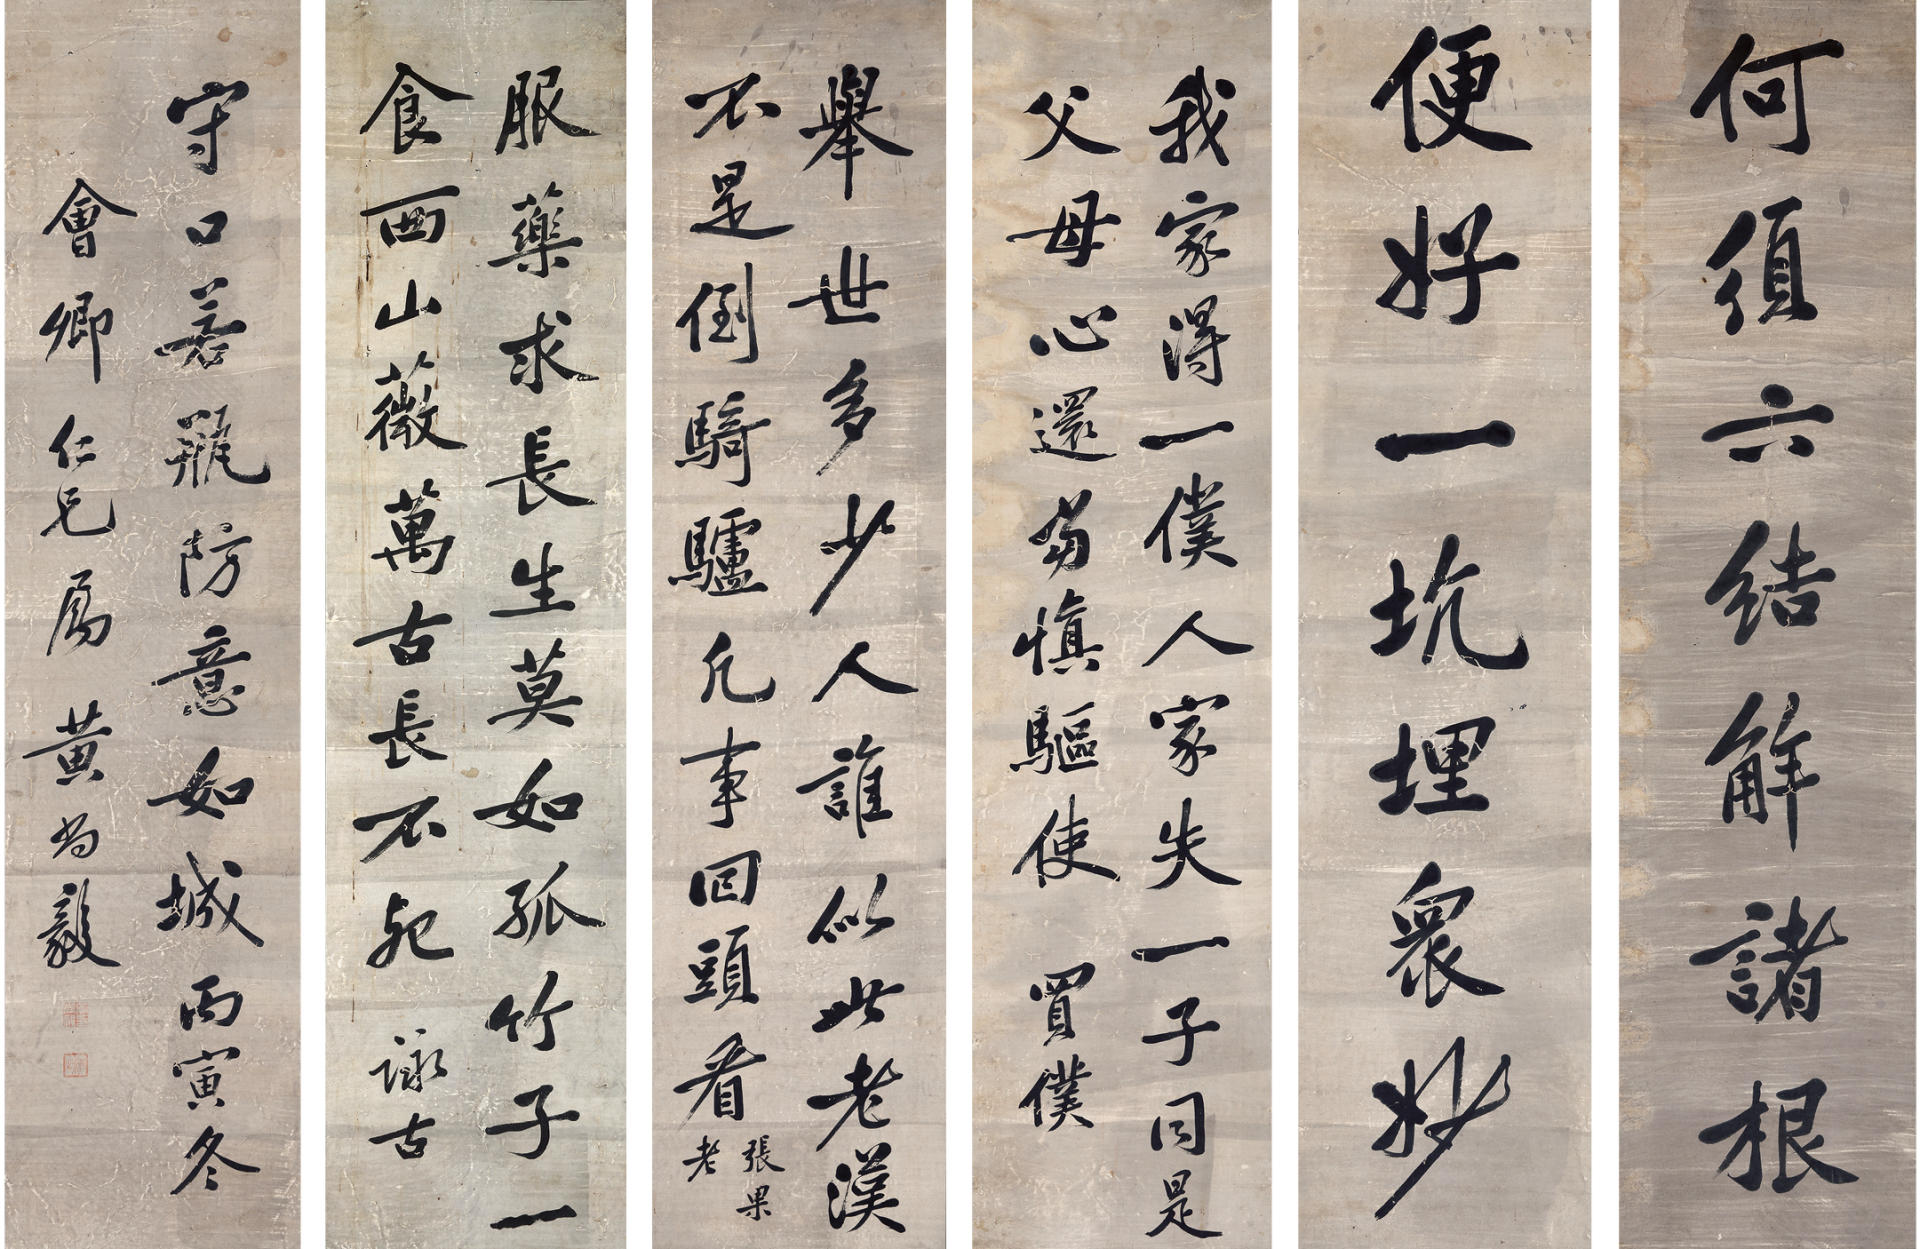 何須六結解諸根
便好一坑埋眾妙
我家得一僕人家失一子同是
父母心還當慎驅使 買僕
舉世多少人誰似此老漢
不是倒騎驢凡事回頭看 張果老
服藥求長生莫如孤竹子一
食西山薇萬古長不死 詠古
守口若瓶防意如城 丙寅冬
會卿仁兄屬 黃尚毅